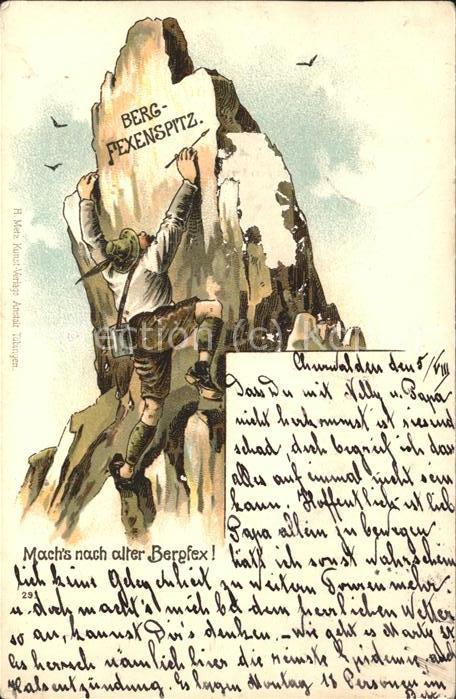 BERG-
FEXENSPITZ.
H. Metz, Kunst-Verlags Anstalt Tübingen.
Mach's nach alter Bergfex!
291
Churwalden den 5/VIII
Dass Du mit Nelly u. Papa
nicht herkommst ist
schad, doch begreif ich das
alles auf einmal nicht sein
kann. Hoffentlich ist lieb
Papa allein zu bewegen
hätt ich sonst wahrschein
lich keine Gelegenheit zu weitern Touren mehr
u. doch macht's mich bei dem herrlichen Wetter
so an, kannst Dir's denken. - wie geht es Marty
Es herrsch nämlich hier die reinste Epidemie
Halsentzündung. Es lagen Montag 13 Personen im